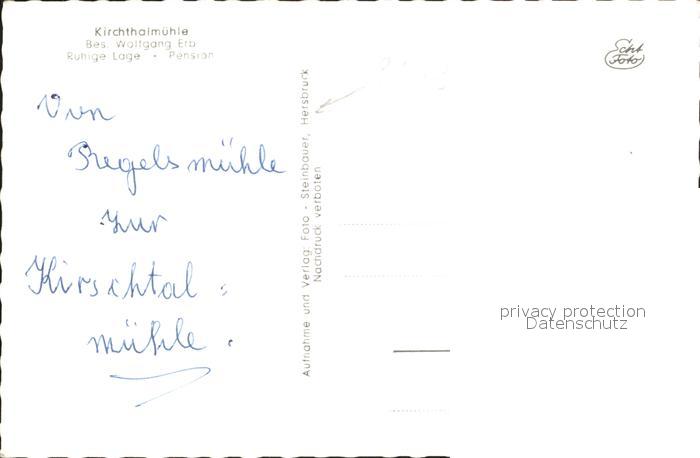 Kirchthalmühle
Bes. Wolfgang Erb
Ruhige Lage - Pension
Von
Regelsmühle
zur
Kirschtal =
mühle.
Aufnahme und Verlag: Foto - Steinbauer, Hersbruck
Nachdruck verboten
Echt
Foto
privacy protection
Datenschutz